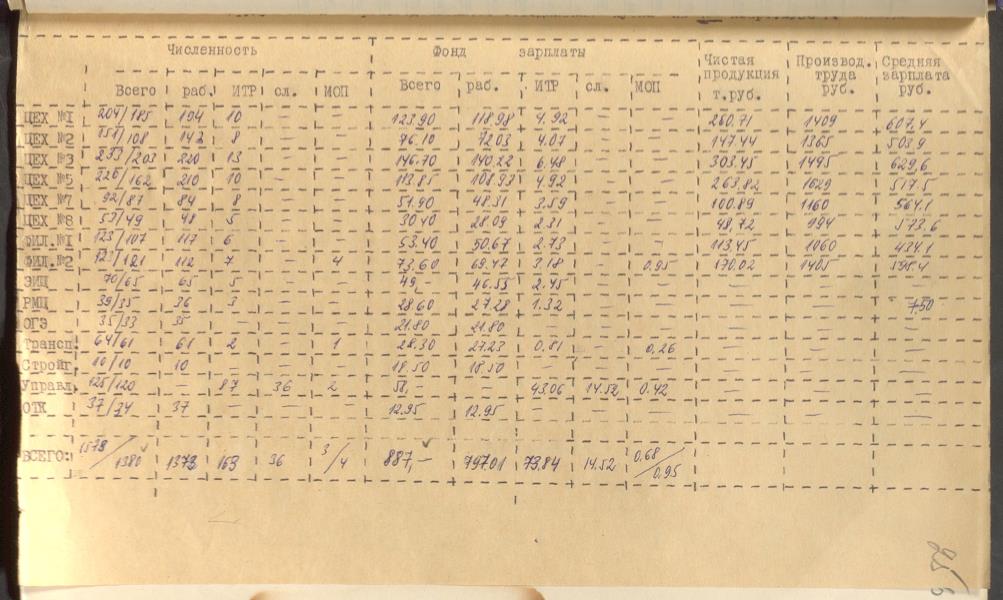 Численность Фонд зарплаты Чистая продукция т.руб. Производ. труда руб. Средняя зарплата руб.
Всего раб. ИТР сл. МОП Всего раб. ИТР сл. МОП
ЦЕХ №I 204/185 194 10 — — 123.90 118.98 4.92 — — 260.71 1409 607.4
ЦЕХ №2 151/108 143 8 — — 76.10 72.03 4.07 — — 147.44 1365 503.9
ЦЕХ №3 233/203 220 13 — — 146.70 140.22 6.48 — — 303.45 1495 629.6
ЦЕХ №5 220/162 210 10 — — 113.85 108.93 4.92 — — 263.82 1629 517.5
ЦЕХ №7 92/87 84 8 — — 51.90 48.31 3.59 — — 100.89 1160 564.1
ЦЕХ №8 53/49 48 5 — — 30.40 28.09 2.31 — — 48.72 994 573.6
ФИЛ.№I 123/107 117 6 — — 53.40 50.67 2.73 — — 113.45 1060 434.1
ФИЛ.№2 /121 112 7 — 4 73.60 69.47 3.18 — 0.95 170.02 1405
ЭИЦ 70/65 65 5 — — 49,- 46.55 2.45 — — — — —
РМЦ 39/35 36 3 — — 28.60 27.28 1.32 — — — — 750
ОГЭ 35/33 35 — — — 21.80 21.80 — — — — — —
Трансп. 64/61 61 2 — 1 28.30 27.23 0.81 — 0.26 — — —
Стройг. 10/10 10 — — — 18.50 18.50 — — — — — —
Управл. 125/120 — 87 36 2 58,- — 43.06 14.52 0.42 — — —
ОТК 37/34 37 — — — 12.95 12.95 — — — — — —
ВСЕГО: 1379/1380 1373 163 36 3/4 887,- 797.01 73.84 14.52 0.68/0.95